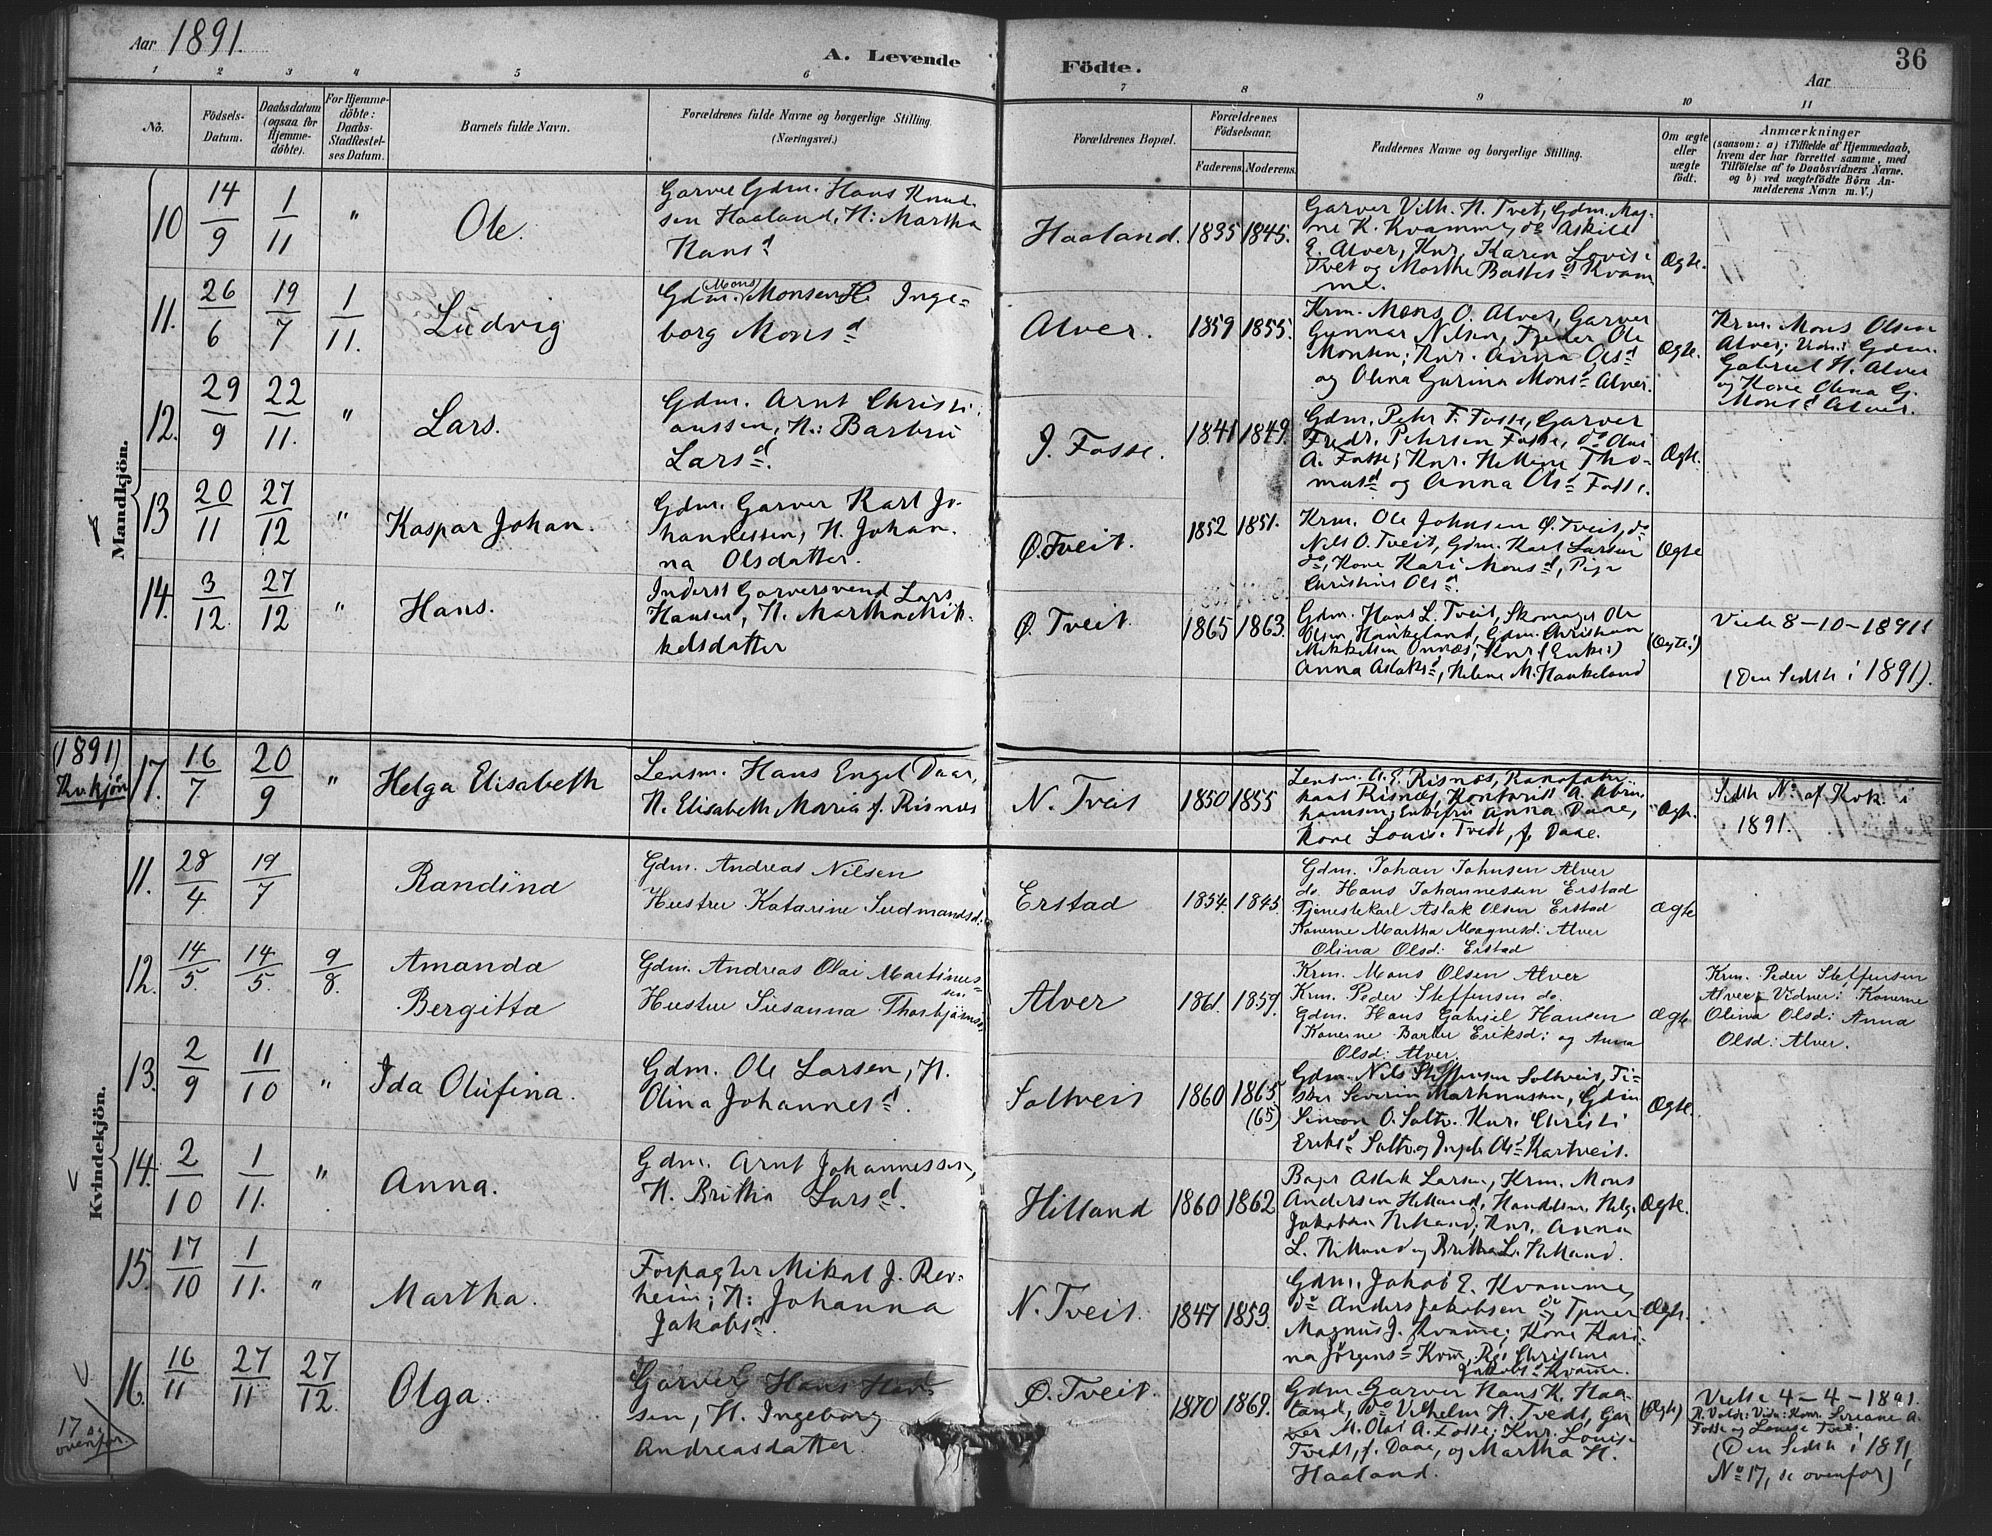 Aar 1891.
A. Levende Födte.
36
Aar
1 2 3 4 5 6 7 8 9 10 11
No.
Födsels-
Datum.
Daabsdatum
(ogsaa for
Hjemme-
döbte).
For Hjemme-
döbte:
Daabs-
Stadfestel-
ses Datum.
Barnets fulde Navn.
Forældrenes fulde Navne og borgerlige Stilling.
(Næringsvei.)
Forældrenes Bopæl.
Forældrenes
Födselsaar.
Faderens. Moderens.
Faddernes Navne og borgerlige Stilling.
Om ægte
eller
uægte
födt.
Anmærkninger
(saasom: a) i Tilfælde af Hjemmedaab,
hvem der har forrettet samme, med
Tilföielse af to Daabsvidners Navne.
og b) ved uægtefödte Börn An-
melderens Navn m. V.)
Mandkjön.
10 14/9 1/11 " Ole.
Garver Gdm. Hans Knud-
sen Haaland, H: Martha
Hans d
Haaland. 1835 1845.
Garver Vilh. H. Tvet, Gdm. Mag-
ne K. Kvamme, do Askild
E. Alver, Knr. Karen Lovise
Tvet og Marthe Bastes d Kvam
me.
Ægte.
11. 26/6 19/7 1/11. Ludvig
Gdm. Mons Monsen H. Inge-
borg Mons d
Alver. 1859 1855.
Krm. Mons O. Alver, Garver
Gunnar Nilsen, Peder Ole
Monsen; Knr. Anna Ols d
og Olina Gurina Mons d Alver.
Ægte.
Krm. Mons Olsen
Alver; Vidn: Gdm.
Gabriel H. Alver
og Kone Olina G.
Mons d Alver.
12. 29/9 22/11. " Lars.
Gdm. Arnt Christi-
anssen, H: Barbru
Lars d.
I. Fosse. 1841 1849.
Gdm. Petr F. Fosse, Garver
Fredr. Petersen Fosse, do Olai
A. Fosse; Knr. Helline Tho-
mas d og Anna Ols d Fosse.
Ægte.
13 20/11 27/12 " Kaspar Johan.
Gdm. Garver Karl Jo-
hannessen, H. Johan-
na Olsdatter.
Ø. Tveit. 1852 1851.
Krm. Ole Johnsen Ø. Tveit, do
Nils O. Tveit, Gdm. Karl Larsen
do, Kone Kari Mons d, Pige
Christine Ols d.
Ægte
14. 3/12. 27/12 " Hans.
Inderst Garversvend Lars
Hansen, H. Martha Mik-
kelsdatter
Ø. Tveit. 1865 1863.
Gdm. Hans L. Tveit, Skomager Ole
Olsen Haukeland, Gdm. Christian
Mikkelsen Onnæs; Knr. (Enke:)
Anna Aslaks d, Helene M. Haukeland
(Ægte!)
Viede 8-10-1891!
(Den Sidste i 1891).
(1891)
Kvkjön
17. 16/7 20/9 " Helga Elisabeth
Lensm. Hans Engel Daae,
H. Elisabeth Maria f. Risnæs
N. Tveit 1850 1855
Lensm. A. E. Risnæs,
Risnæs, Kontorist A. Abra-
hamsen; Enkefru Anna Daae,
Kone Louise Tvedt, f. Daae.
Ægte.
Sidste No. af Kvk. i
1891.
Kvindekjön.
11. 28/4. 19/7 Randina
Gdm. Andreas Nilsen
Hustru Katarine Sudmandsd.
Erstad 1854. 1845.
Gdm. Johan Johnsen Alver
do. Hans Johannessen Erstad
Tjenestekarl Aslak Olsen Erstad
Konerne Martha Magnesd: Alver
Olina Olsd: Erstad
Ægte
12. 14/5. 14/5. 9/8. Amanda
Bergitta
Gdm. Andreas Olai Martinus-
sen
Hustru Susanna Thorbjørnsd.
Alver 1861. 1859.
Krm. Mons Olsen Alver
Krm. Peder Steffensen do.
Gdm. Hans Gabriel Hansen
Konerne Barbro Eriksd: og Anna
Olsd: Alver.
Ægte
Krm. Peder Steffensen
Alver; Vidner: Konerne
Olina Olsd: Anna
Olsd: Alver.
13. 2/9 11/10 " Ida Olufina.
Gdm. Ole Larsen, H.
Olina Johannes d.
Soltveit 1860 1865
(65)
Gdm. Nils Steffensen Soltveit, Ti-
Severin Martinussen, Gdm
Simon O. Soltv. Knr. Christi
Eriks d Soltv. og Ingeb. Ols d Kartveit.
Ægte
14. 2/10 1/11. " Anna.
Gdm. Arnt Johannessen,
H. Britha Lars d.
Hilland 1860 1862
Bager Aslak Larsen, Krm. Mons
Andersen Hilland, Handelsm. Helge
Jakobsen Hilland; Knr. Anna
L. Hilland og Britha L. Hilland.
Ægte.
15. 17/10 1/11. " Martha.
Forpagter Mikal J. Rev-
heim; H: Johanna
Jakobs d.
N. Tveit. 1847 1853.
Gdm. Jakob E. Kvamme,
do Anders Jakobsen do, Tjener
Magnus J. Kvamme; Kone Kari-
na Jørgens d Kvm, Pg. Christine
Jakobs d Kvamme.
Ægte.
16. 16/11 27/11 27/12. Olga.
Garver Hans Han-
sen, H. Ingeborg
Andreasdatter.
Ø. Tveit. 1870 1869.
Gdm. Garver Hans K. Haa-
land, do Vilhelm H. Tvedt, Gar-
ver M. Olai A. Fosse; Knr. Louise
Tvedt, f. Daae, og Martha H.
Haaland.
(Ægte)
Viede 4-4-1891.
Fosse og Louise Tvet.
(Den Sidste i 1891,
No 17, se ovenfor)
17 se
ovenfor.